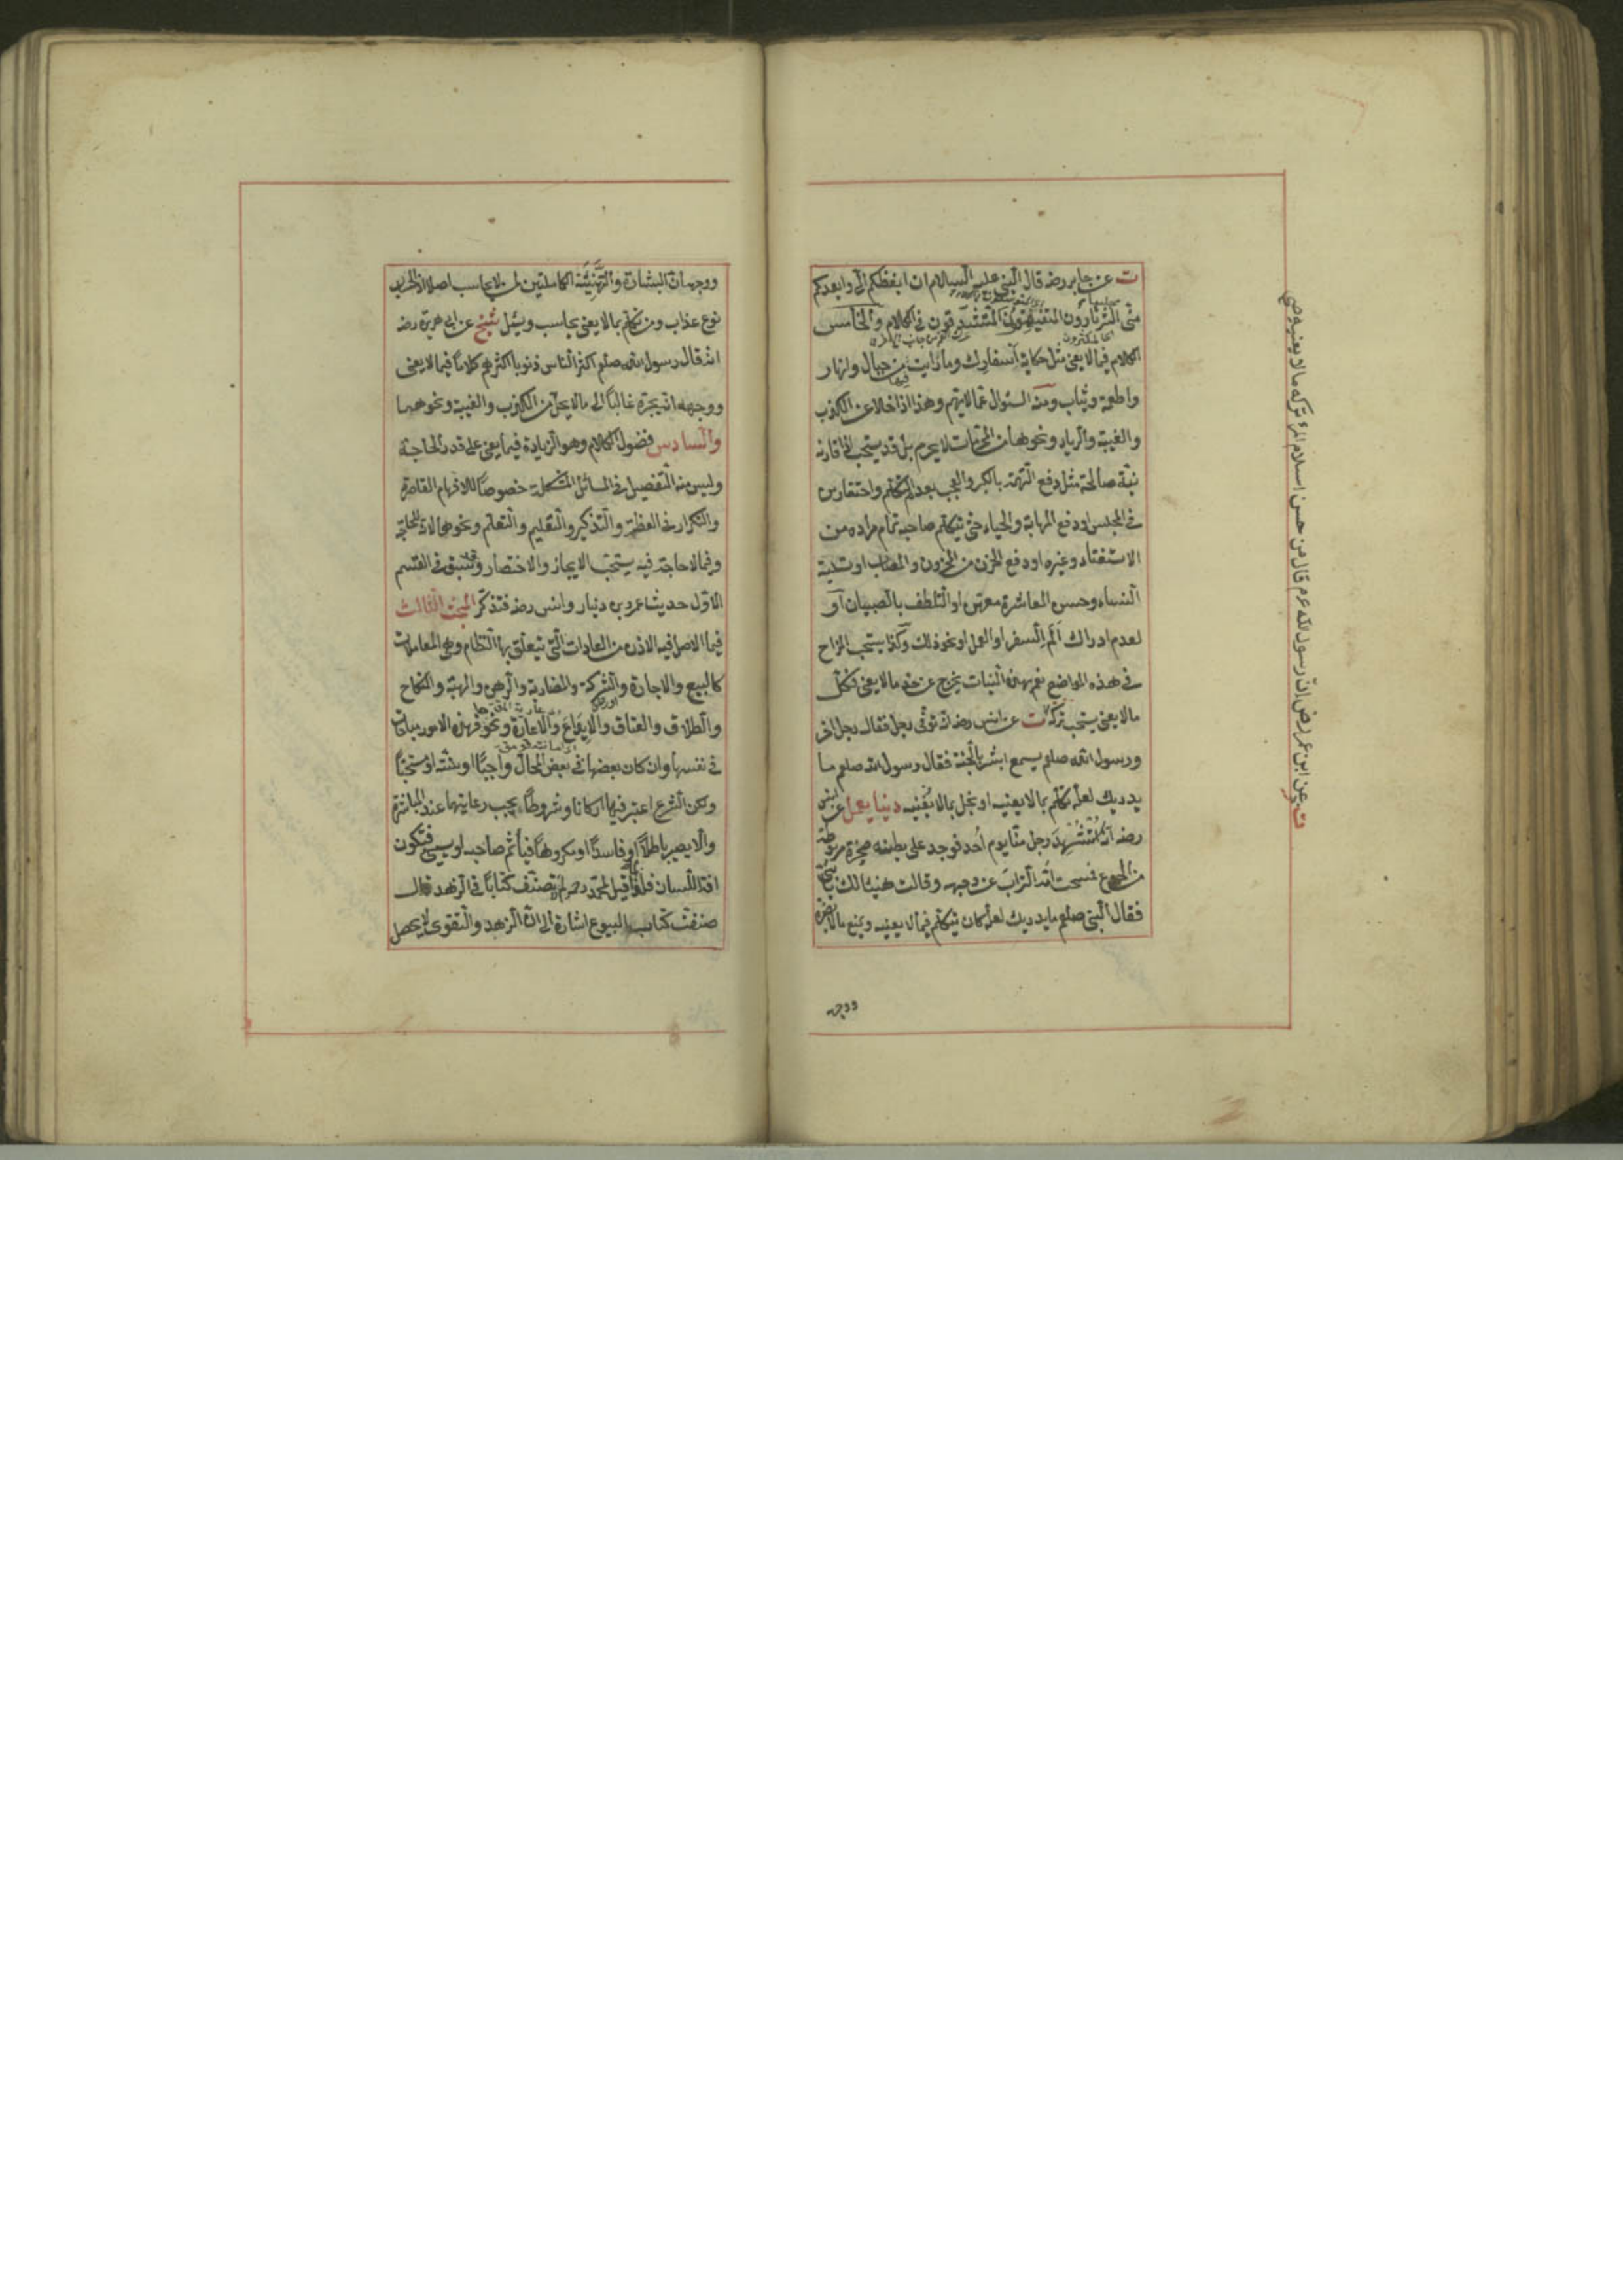 ت عن جابر رضه قال النبي عليه السلام ان ابغضكم الي وابعدكم
مني الثرثارون المتفيهقون المتشدقون في الكلام والخامس
الكلام فيما لا يعني مثل حكاية اسفارك وما رايت فيها من جبال وانهار
واطعمة وثياب ومنه السئوال عما لا يهم وهذا اذا خلا عن الكذب
والغيبة والرياء ونحوها من المحرمات لا يحرم بل قد يستحب اذا قارنه
نية صالحة مثل دفع التهمة بالكبر والعجب بعدم التكلم واحتقار من
في المجلس او دفع المهابة والحياء حتى يتكلم صاحبه تمام مراده من
الاستفتاء وغيره او دفع الحزن من المحزون والمصاب او تسلية
النساء وحسن المعاشرة معهن او التلطف بالصبيان او
لعدم ادراك الم السفر او العمل او نحو ذلك وكذا يستحب المزاح
في هذه المواضع نعم بهذه النيات يخرج عن حد ما لا يعني فكل
ما لا يعني يستحب تركه ت عن انس رضه انه توفي رجل فقال رجل اخر
ورسول الله صلعم يسمع ابشر بالجنة فقال رسول الله صلعم ما
يدريك لعله تكلم بما لا يعنيه او بخل بما لا يغنيه دنيا يعل عن انس
رضه انه استشهد رجل منا يوم احد فوجد على بطنه صخرة مربوطة
من الجوع فمسحت امه التراب عن وجهه وقالت هنيئا لك يا بني
فقال النبي صلعم ما يدريك لعله كان يتكلم فيما لا يعنيه ويمنع ما لا يضره
ووجهه
ت عن ابن عمر رض ان رسول الله عم قال من حسن اسلام المرء تركه ما لا يعنيه
ووجهه ان البشارة والتهنئة الكاملتين لمن لا يحاسب اصلا اذ الحساب
نوع عذاب ومن تكلم بما لا يعني يحاسب ويسئل شيخ عن ابي هريرة رضه
انه قال رسول الله صلعم اكثر الناس ذنوبا اكثرهم كلاما فيما لا يعني
ووجهه انه يجره غالبا الى ما لا يحل من الكذب والغيبة ونحوهما
والسادس فضول الكلام وهو الزيادة فيما يعني على قدر الحاجة
وليس منه التفصيل في المسائل المشكلة خصوصا للافهام القاصرة
والتكرار في العظة والتذكير والتعليم والتعلم ونحوها لانه للحاجة
وفيما لا حاجة فيه يستحب الايجاز والاختصار وقد سبق في القسم
الاول حديثا عمرو بن دينار وانس رضه فتذكر المبحث الثالث
فيما الاصل فيه الاذن من العادات التي تتعلق بها النظام وهي المعاملات
كالبيع والاجارة والشركة والمضاربة والرهن والهبة والنكاح
والطلاق والعتاق والايداع والاعارة ونحو فهذه الامور مباحات
في نفسها وان كان بعضها في بعض المحال واجبا او سنة او مستحبا
ولكن الشرع اعتبر فيها اركانا وشروطا يجب رعايتها عند المباشرة
والا يصير باطلا او فاسدا او مكروها فيأثم صاحبه او يسيئ فتكون
افة اللسان فلذا قيل لمحمد رحمه لم لا تصنف كتابا في الزهد قال
صنفت كتاب البيوع اشارة الى ان الزهد والتقوى لا يحصل